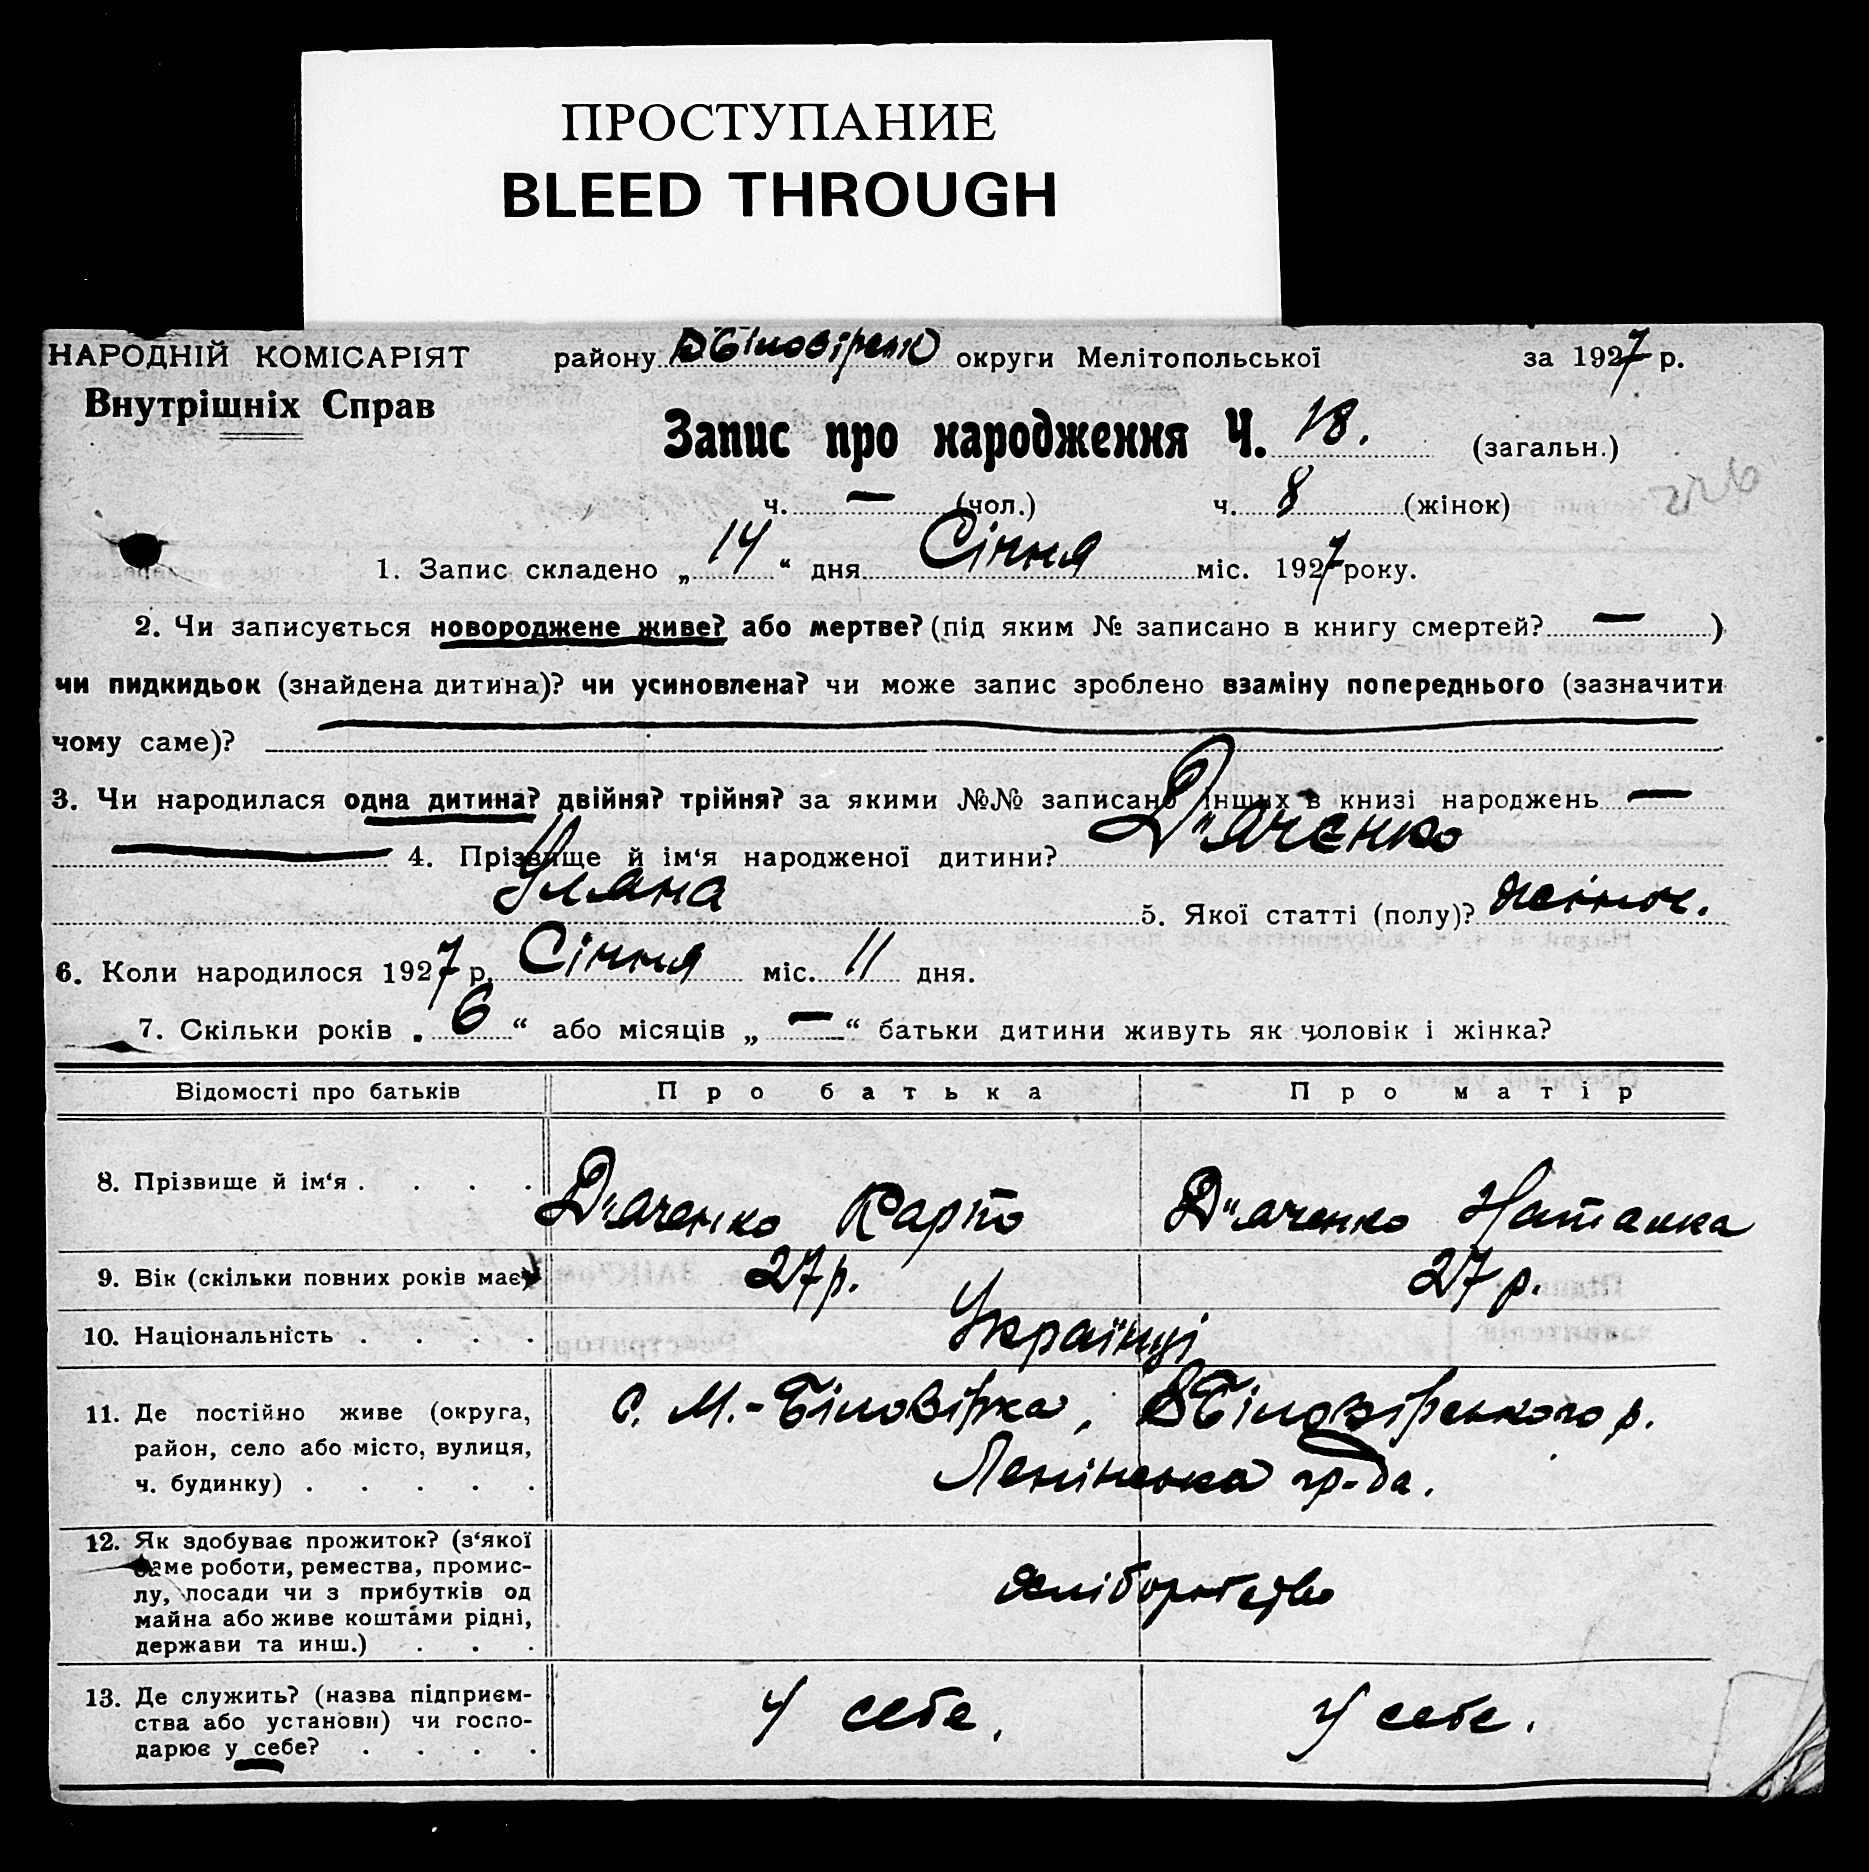 ПРОСТУПАНИЕ
BLEED THROUGH
НАРОДНІЙ КОМІСАРІЯТ району округи Мелітопольської за 1927 р.
Внутрішніх Справ
Запис про народження Ч. 18. (загальн.)
ч. — (чол.) ч. 8 (жінок)
1. Запис складено „ 14 “ дня Січня міс. 1927 року.
2. Чи записується новороджене живе? або мертве? (під яким № записано в книгу смертей? — )
чи пидкидьок (знайдена дитина)? чи усиновлена? чи може запис зроблено взаміну попереднього (зазначити
чому саме)?
3. Чи народилася одна дитина? двійня? трійня? за якими №№ записано інших в книзі народжень —
— 4. Прізвище й ім‘я народженої дитини? Д"яченко
Уляна 5. Якої статті (полу)? жіноч.
6. Коли народилося 1927 р. Січня міс. 11 дня.
7. Скільки років „ 6 “ або місяців „ — “ батьки дитини живуть як чоловік і жінка?
Відомості про батьків Про батька Про матір
8. Прізвище й ім‘я . . . . Д"яченко Карпо Д"яченко Наталка
9. Вік (скільки повних років має) 27 р. 27 р.
10. Національність . . . . Українці
11. Де постійно живе (округа,
район, село або місто, вулиця,
ч. будинку) . . . . .
с. М.-Біловірка, р.
Ленінська гр-да.
12. Як здобуває прожиток? (з‘якої
саме роботи, ремества, промис-
лу, посади чи з прибутків од
майна або живе коштами рідні,
держави та инш.) . . .
хліборобство
13. Де служить? (назва підприєм-
ства або установи) чи госпо-
дарює у себе? . . . .
У себе. У себе.